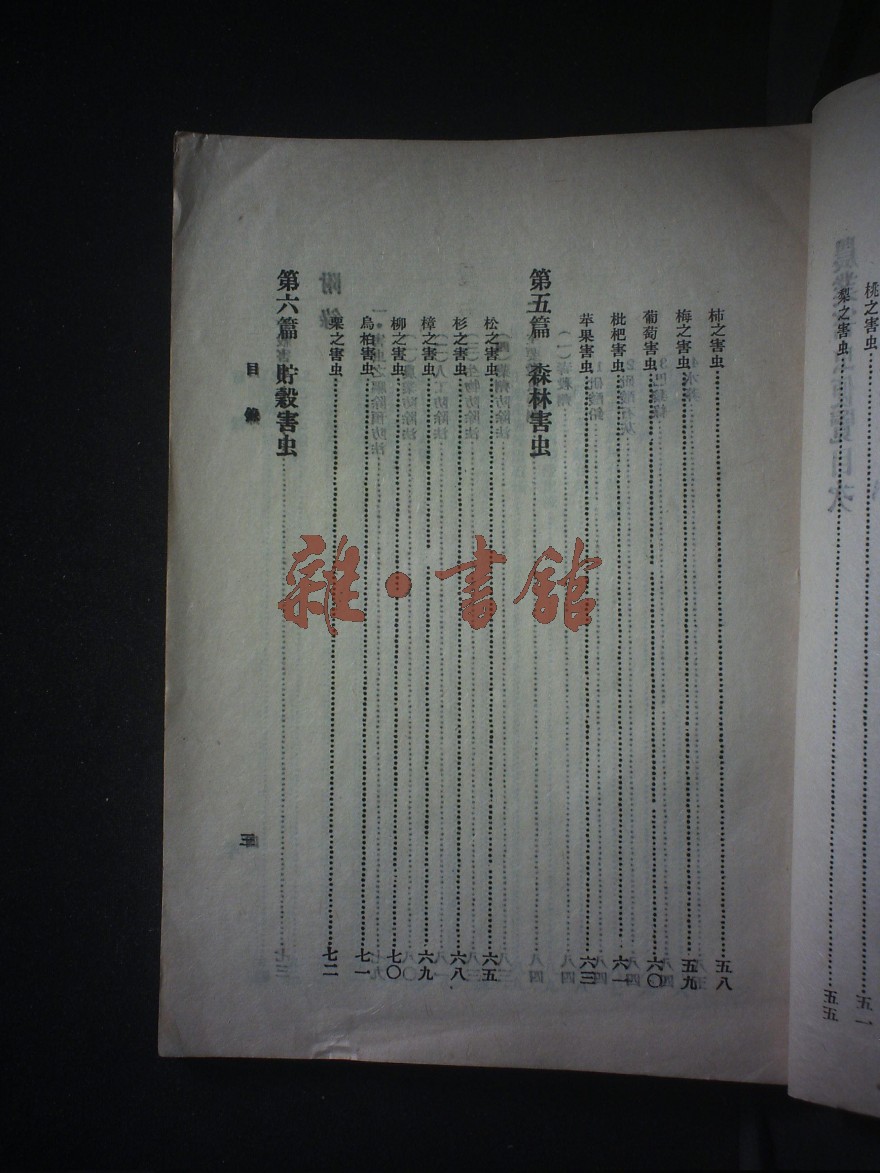 桃之害虫……五一
梨之害虫……五五
柿之害虫……五八
梅之害虫……五九
葡萄害虫……六〇
枇杷害虫……六一
苹果害虫……六三
第五篇 森林害虫
松之害虫……六五
杉之害虫……六八
樟之害虫……六九
柳之害虫……七〇
烏桕害虫……七一
栗之害虫……七二
第六篇 貯穀害虫……七三
目錄
三
雜·書館